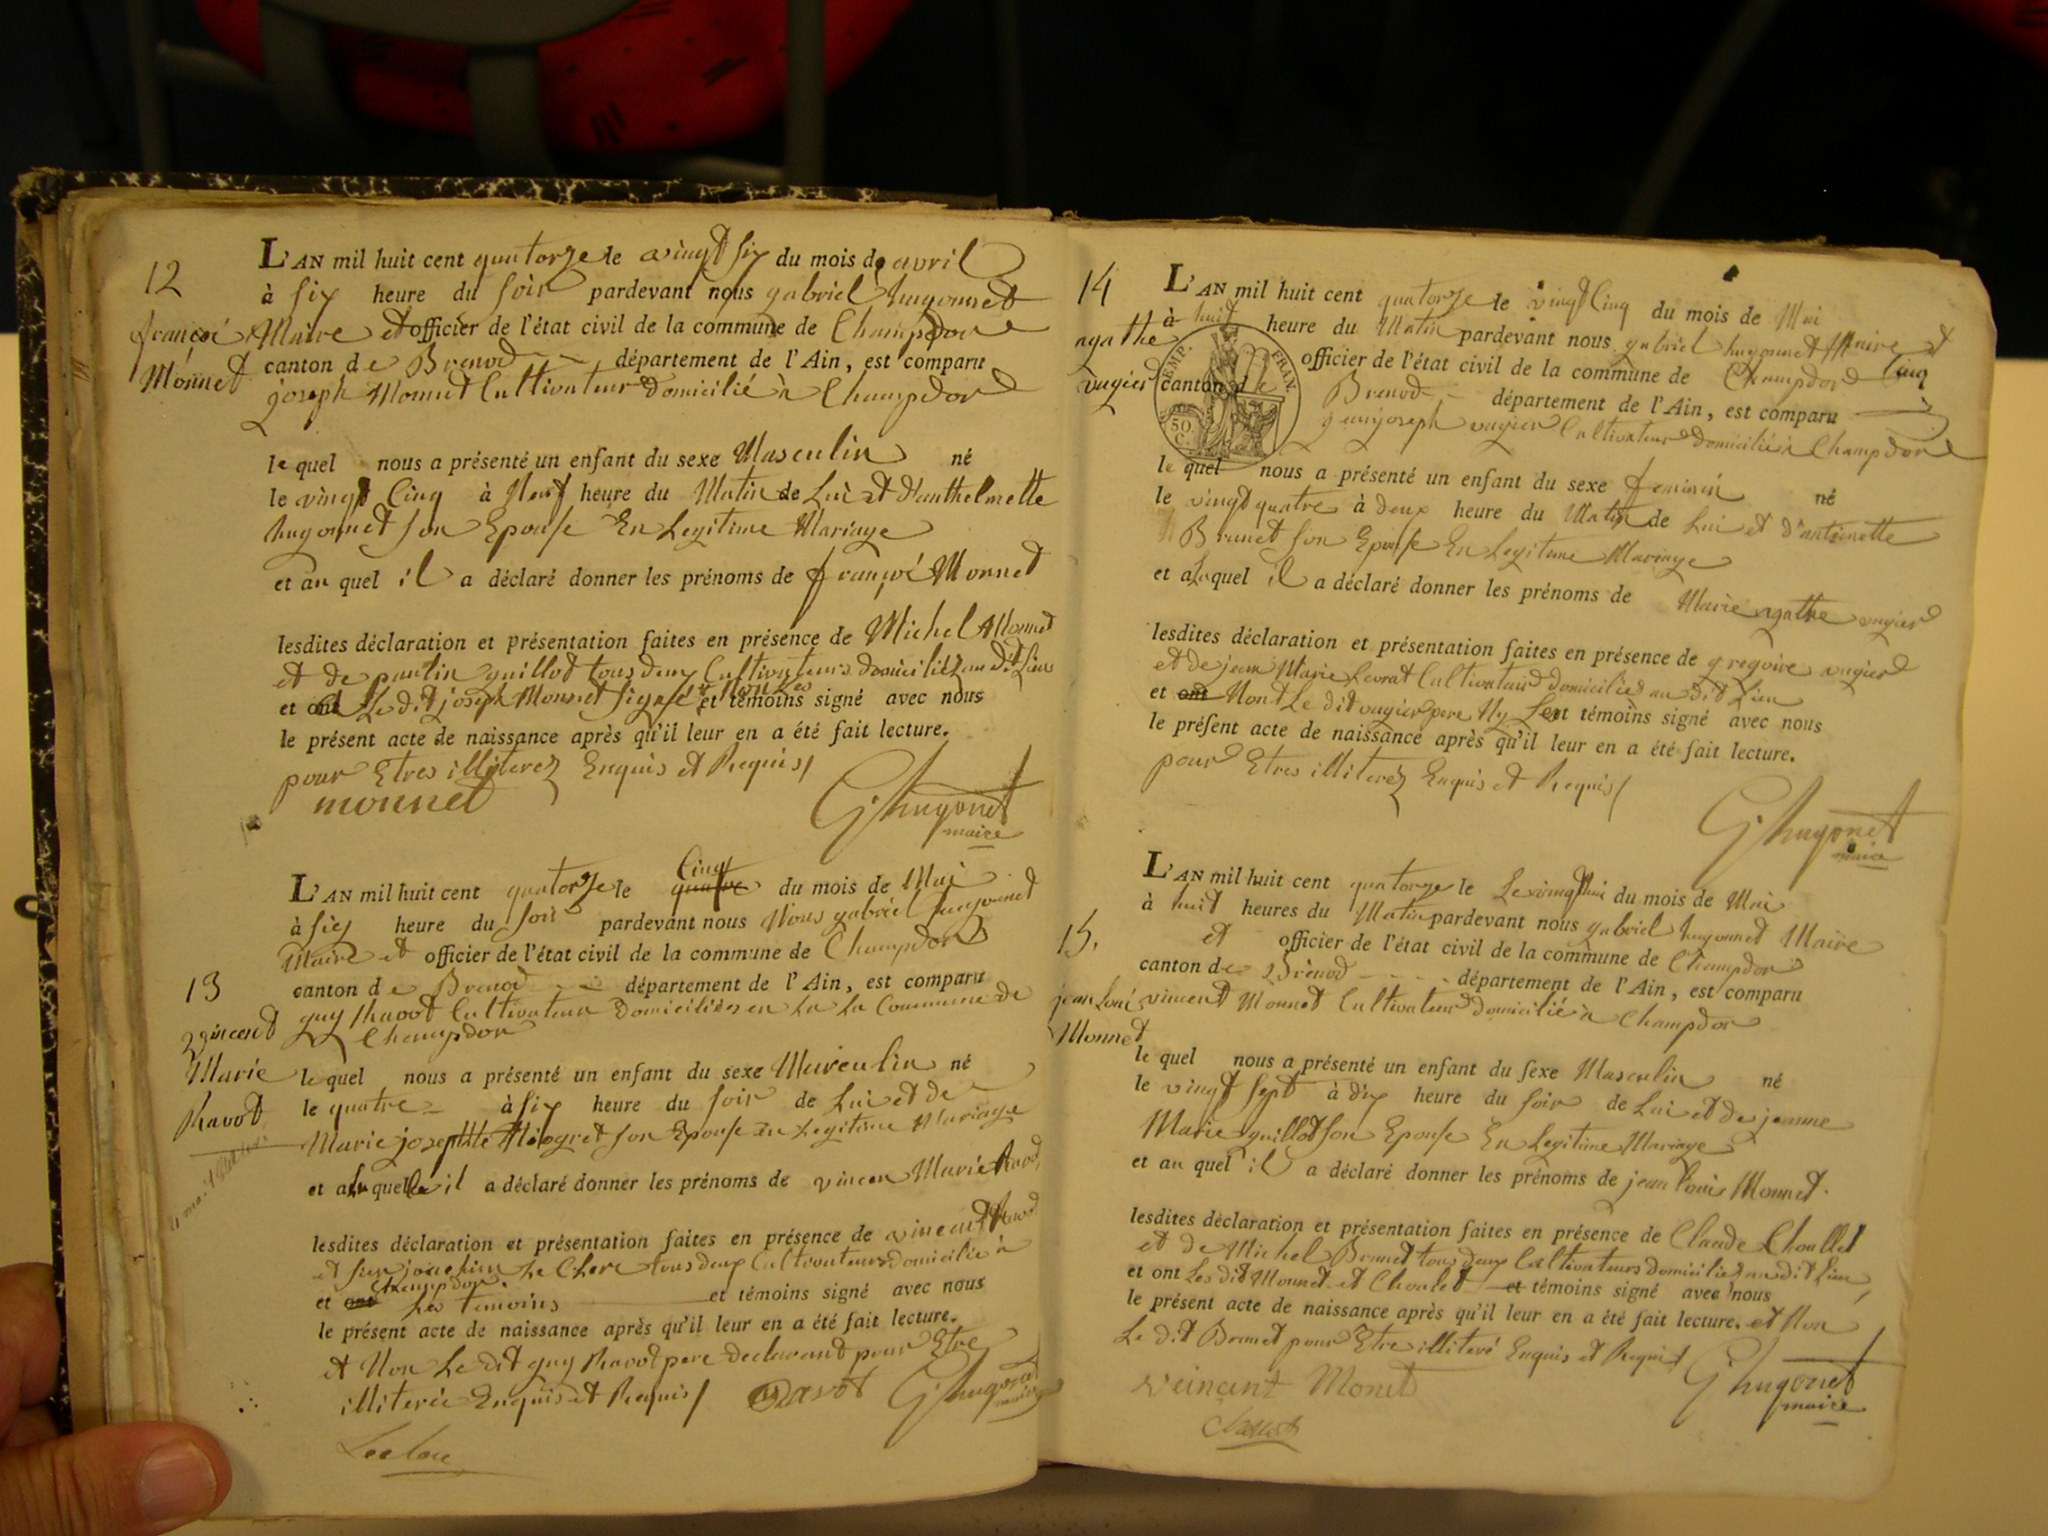 12
françoi
Monnet
L'AN mil huit cent quatorze le vingt six du mois de avril
à six heure du soir pardevant nous gabriel hugonnet
Maire et officier de l'état civil de la commune de Champdor
canton de Brenod département de l'Ain, est comparu
joseph Monnet Cultivateur domicilié à Champdor
le quel nous a présenté un enfant du sexe Masculin né
le vingt Cinq à Neuf heure du Matin de Lui et d'anthelmette
hugonnet son Epouse En Legitime Mariage
et au quel il a déclaré donner les prénoms de françoi Monnet
lesdites déclaration et présentation faites en présence de Michel Monnet
et de paulin guillot tous deux Cultivateurs domiciliez au dit Lieu
et ont Le dit joseph Monnet signé et non Les et témoins signé avec nous
le présent acte de naissance après qu'il leur en a été fait lecture.
pour Etres illiterez Enquis et Requis/
monnet
G. hugonet
maire
13
vincent
Marie
Ravot
L'AN mil huit cent quatorze le quatre Cinq du mois de Mai
à six heure du soir pardevant nous Nous gabriel hugonnet
Maire et officier de l'état civil de la commune de Champdor
canton de Brenod département de l'Ain, est comparu
guy Ravot Cultivateur domiciliées en La La Commune de
Champdor
le quel nous a présenté un enfant du sexe Masculin né
le quatre à six heure du soir de Lui et de
Marie josephte son Epouse En Legitime Mariage
et au quel il a déclaré donner les prénoms de vincen Marie Ravot
lesdites déclaration et présentation faites en présence de vincent Ravot
et Le Clerc tous deux Cultivateurs domicilié à
Champdor.
et ont Les temoins et témoins signé avec nous
le présent acte de naissance après qu'il leur en a été fait lecture.
et Non Le dit guy Ravot pere declarant pour Etre
illiterée Enquis et Requis/ Ravot G. hugonet
maire
14
agathe
vugier
EMP. FRAN.
50 C.
L'AN mil huit cent quatorze le vingt Cinq du mois de Mai
à huit heure du Matin pardevant nous gabriel hugonnet Maire et
officier de l'état civil de la commune de Champdor
canton de Brenod département de l'Ain, est comparu
jean joseph vugier Cultivateur domicilié à Champdor
le quel nous a présenté un enfant du sexe feminin né
le vingt quatre à deux heure du Matin de Lui et d'antoinette
Brunet son Epouse En Legitime Mariage
et a Laquel il a déclaré donner les prénoms de Marie agathe vugier
lesdites déclaration et présentation faites en présence de gregoire vugier
et de jean Marie Levrat Cultivateurs domiciliés au dit Lieu
et ont Nont Le dit vugier pere Ny Les et témoins signé avec nous
le présent acte de naissance après qu'il leur en a été fait lecture.
pour Etres illiterez Enquis et Requis/
G. hugonet
maire
15.
jean Loui
Monnet
L'AN mil huit cent quatorze le Le vingt huit du mois de Mai
à huit heures du Matin pardevant nous gabriel hugonnet Maire
et officier de l'état civil de la commune de Champdor
canton de Brenod département de l'Ain, est comparu
vincent Monnet Cultivateur domicilié à Champdor
le quel nous a présenté un enfant du sexe Masculin né
le vingt sept à dix heure du soir de Lui et de jeanne
Marie guillot son Epouse En Legitime Mariage
et au quel il a déclaré donner les prénoms de jean Louis Monnet.
lesdites déclaration et présentation faites en présence de Claude Choullet
et de Michel Bonnet tous deux Cultivateurs domiciliez au dit Lieu
et ont Les dit Monnet et Choulet et témoins signé avec nous
le présent acte de naissance après qu'il leur en a été fait lecture. et Non
Le dit Bonnet pour Etre illiteré Enquis et Requis
veincent Monet
G. hugonet
maire